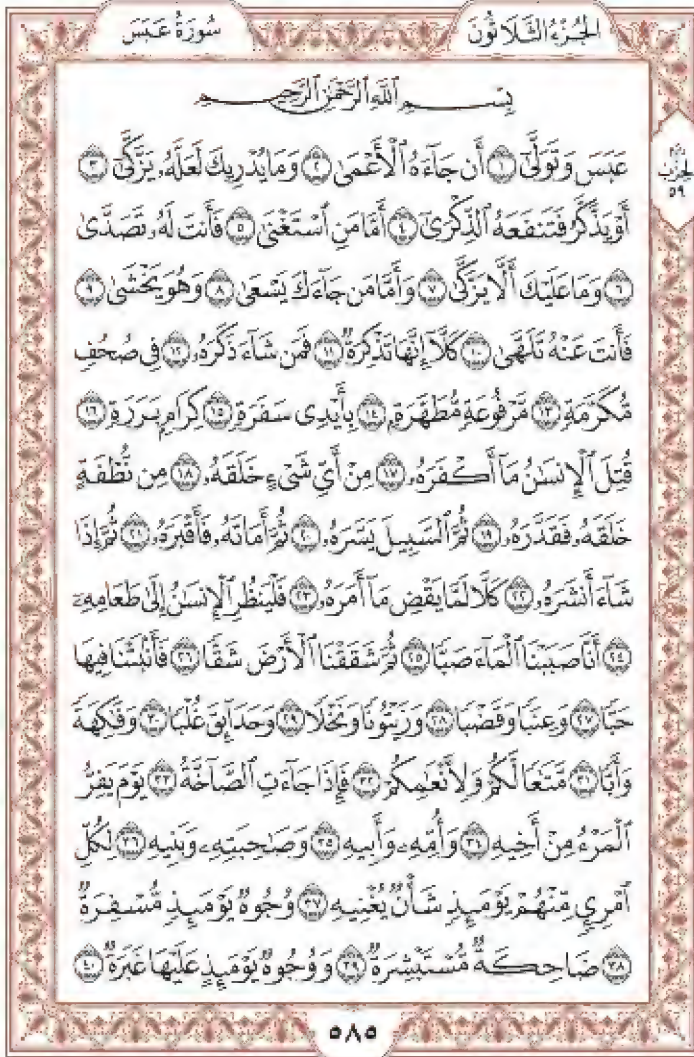 سُورَةُ عَبَسَ
الجُزْءُ الثَّلَاثُونَ
بِسْمِ ٱللَّهِ ٱلرَّحْمَٰنِ ٱلرَّحِيمِ
عَبَسَ وَتَوَلَّىٰٓ ١ أَن جَآءَهُ ٱلْأَعْمَىٰ ٢ وَمَا يُدْرِيكَ لَعَلَّهُۥ يَزَّكَّىٰٓ ٣
أَوْ يَذَّكَّرُ فَتَنفَعَهُ ٱلذِّكْرَىٰٓ ٤ أَمَّا مَنِ ٱسْتَغْنَىٰ ٥ فَأَنتَ لَهُۥ تَصَدَّىٰ
٦ وَمَا عَلَيْكَ أَلَّا يَزَّكَّىٰ ٧ وَأَمَّا مَن جَآءَكَ يَسْعَىٰ ٨ وَهُوَ يَخْشَىٰ ٩
فَأَنتَ عَنْهُ تَلَهَّىٰ ١٠ كَلَّآ إِنَّهَا تَذْكِرَةٌ ١١ فَمَن شَآءَ ذَكَرَهُۥ ١٢ فِى صُحُفٍ
مُّكَرَّمَةٍ ١٣ مَّرْفُوعَةٍ مُّطَهَّرَةٍۭ ١٤ بِأَيْدِى سَفَرَةٍ ١٥ كِرَامٍۭ بَرَرَةٍ ١٦
قُتِلَ ٱلْإِنسَٰنُ مَآ أَكْفَرَهُۥ ١٧ مِنْ أَىِّ شَىْءٍ خَلَقَهُۥ ١٨ مِن نُّطْفَةٍ
خَلَقَهُۥ فَقَدَّرَهُۥ ١٩ ثُمَّ ٱلسَّبِيلَ يَسَّرَهُۥ ٢٠ ثُمَّ أَمَاتَهُۥ فَأَقْبَرَهُۥ ٢١ ثُمَّ إِذَا
شَآءَ أَنشَرَهُۥ ٢٢ كَلَّا لَمَّا يَقْضِ مَآ أَمَرَهُۥ ٢٣ فَلْيَنظُرِ ٱلْإِنسَٰنُ إِلَىٰ طَعَامِهِۦٓ
٢٤ أَنَّا صَبَبْنَا ٱلْمَآءَ صَبًّا ٢٥ ثُمَّ شَقَقْنَا ٱلْأَرْضَ شَقًّا ٢٦ فَأَنۢبَتْنَا فِيهَا
حَبًّا ٢٧ وَعِنَبًا وَقَضْبًا ٢٨ وَزَيْتُونًا وَنَخْلًا ٢٩ وَحَدَآئِقَ غُلْبًا ٣٠ وَفَٰكِهَةً
وَأَبًّا ٣١ مَّتَٰعًا لَّكُمْ وَلِأَنْعَٰمِكُمْ ٣٢ فَإِذَا جَآءَتِ ٱلصَّآخَّةُ ٣٣ يَوْمَ يَفِرُّ
ٱلْمَرْءُ مِنْ أَخِيهِ ٣٤ وَأُمِّهِۦ وَأَبِيهِ ٣٥ وَصَٰحِبَتِهِۦ وَبَنِيهِ ٣٦ لِكُلِّ
ٱمْرِئٍ مِّنْهُمْ يَوْمَئِذٍ شَأْنٌ يُغْنِيهِ ٣٧ وُجُوهٌ يَوْمَئِذٍ مُّسْفِرَةٌ
٣٨ ضَاحِكَةٌ مُّسْتَبْشِرَةٌ ٣٩ وَوُجُوهٌ يَوْمَئِذٍ عَلَيْهَا غَبَرَةٌ ٤٠
الحِزْب
٥٩
٥٨٥